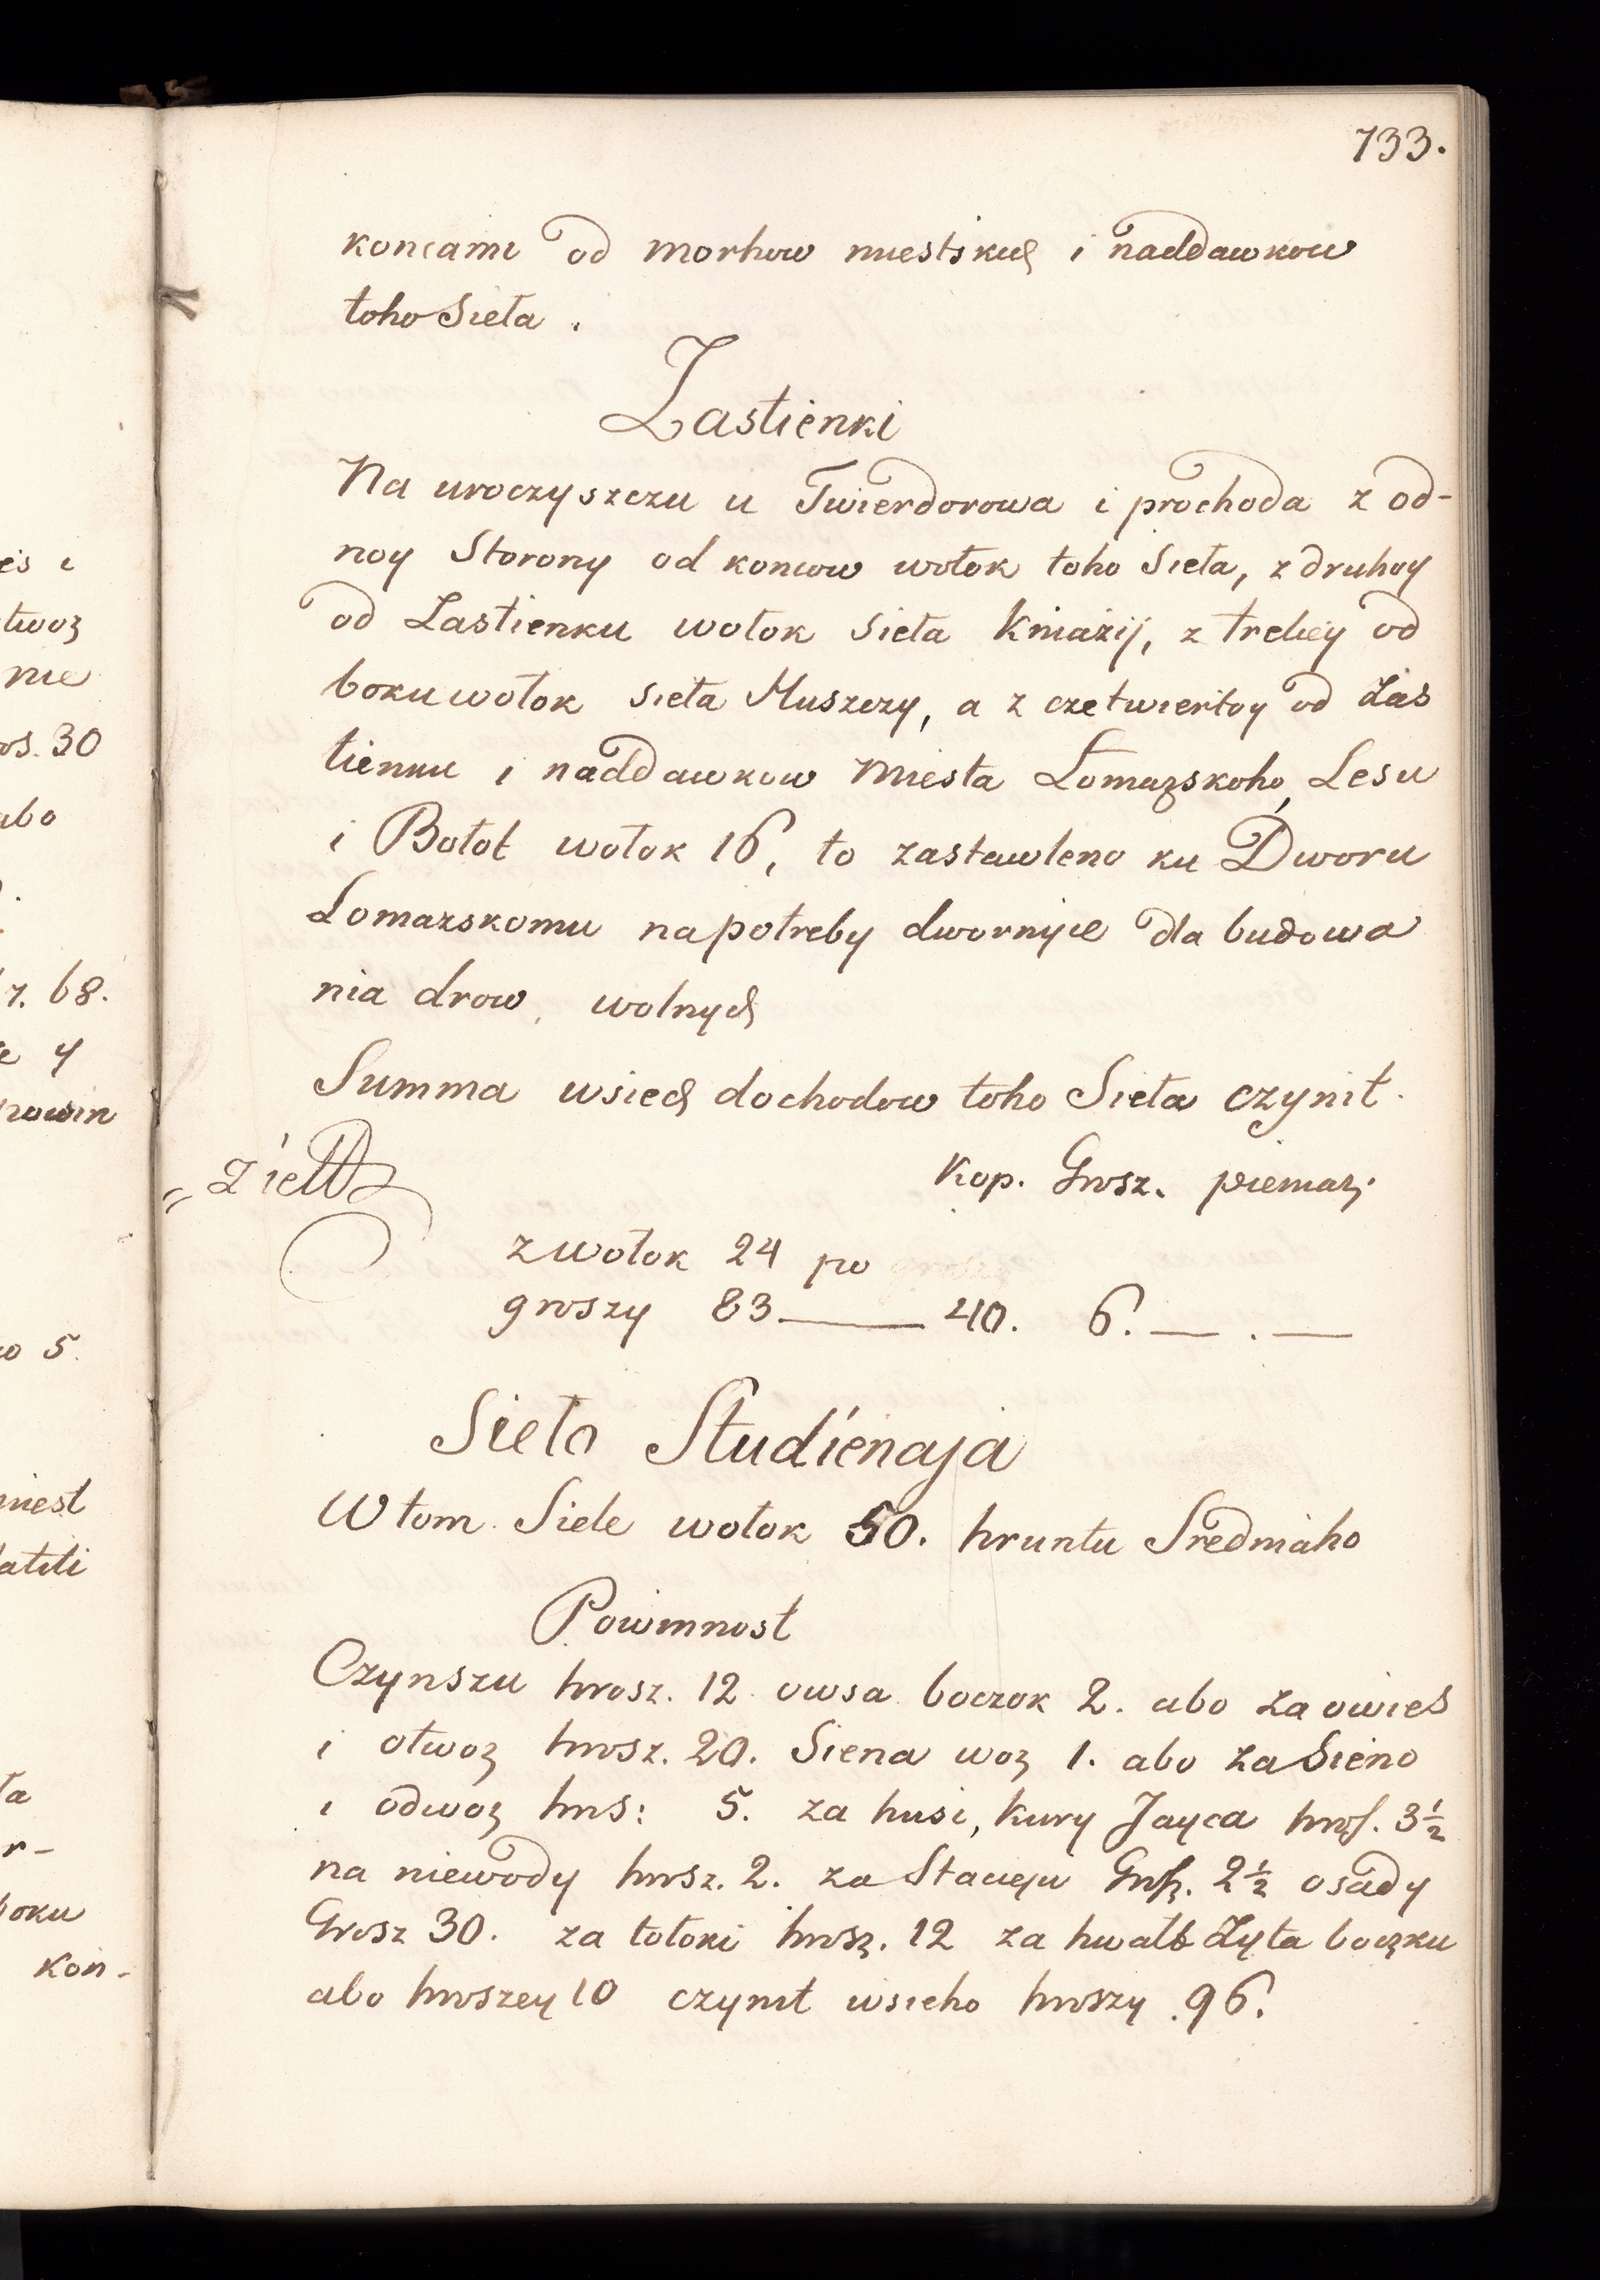 733.
koncami od morhow miestskich i naddawkow
toho Sieła.
Zastienki
Na uroczyszczu u Twierdorowa i prochoda z od-
noy Storony od koncow wołok toho Sieła, z druhoy
od Zastienku wołok Sieła Kniażij, z tretiey od
boku wołok sieła Huszczy, a z czetwiertoy od Zas
tienku i naddawkow Miesta Łomazskoho, Lesu
i Bołot wołok 16, to zastawleno ku Dworu
Łomazskomu na potreby dwornyie dla budowa
nia drow, wolnych
Summa wsiech dochodow toho Sieła czynit.
Kop. Grosz. pieniaz.
z wołok 24 po
groszy 83 — 40. 6. — . —
Sieło Studienaja
W tom Siele wołok 50. hruntu Sredniaho
Powinnost
Czynszu hrosz. 12 owsa boczok 2. abo za owies
i otwoz hrosz. 20. Siena woz 1. abo za Sieno
i odwoz hros: 5. za husi, kury Jayca hros. 3½
na niewody hrosz. 2. za Stacyju Grosz. 2½ osady
Grosz 30. za tołoki hrosz. 12 za hwałt Żyta boczku
abo hroszey 10 czynit wsieho hroszy 96.
es i
twoz
nie
os. 30
abo
z. 68.
e y
powin
o 5.
miest
łatili
ła
r-
boku
kon-